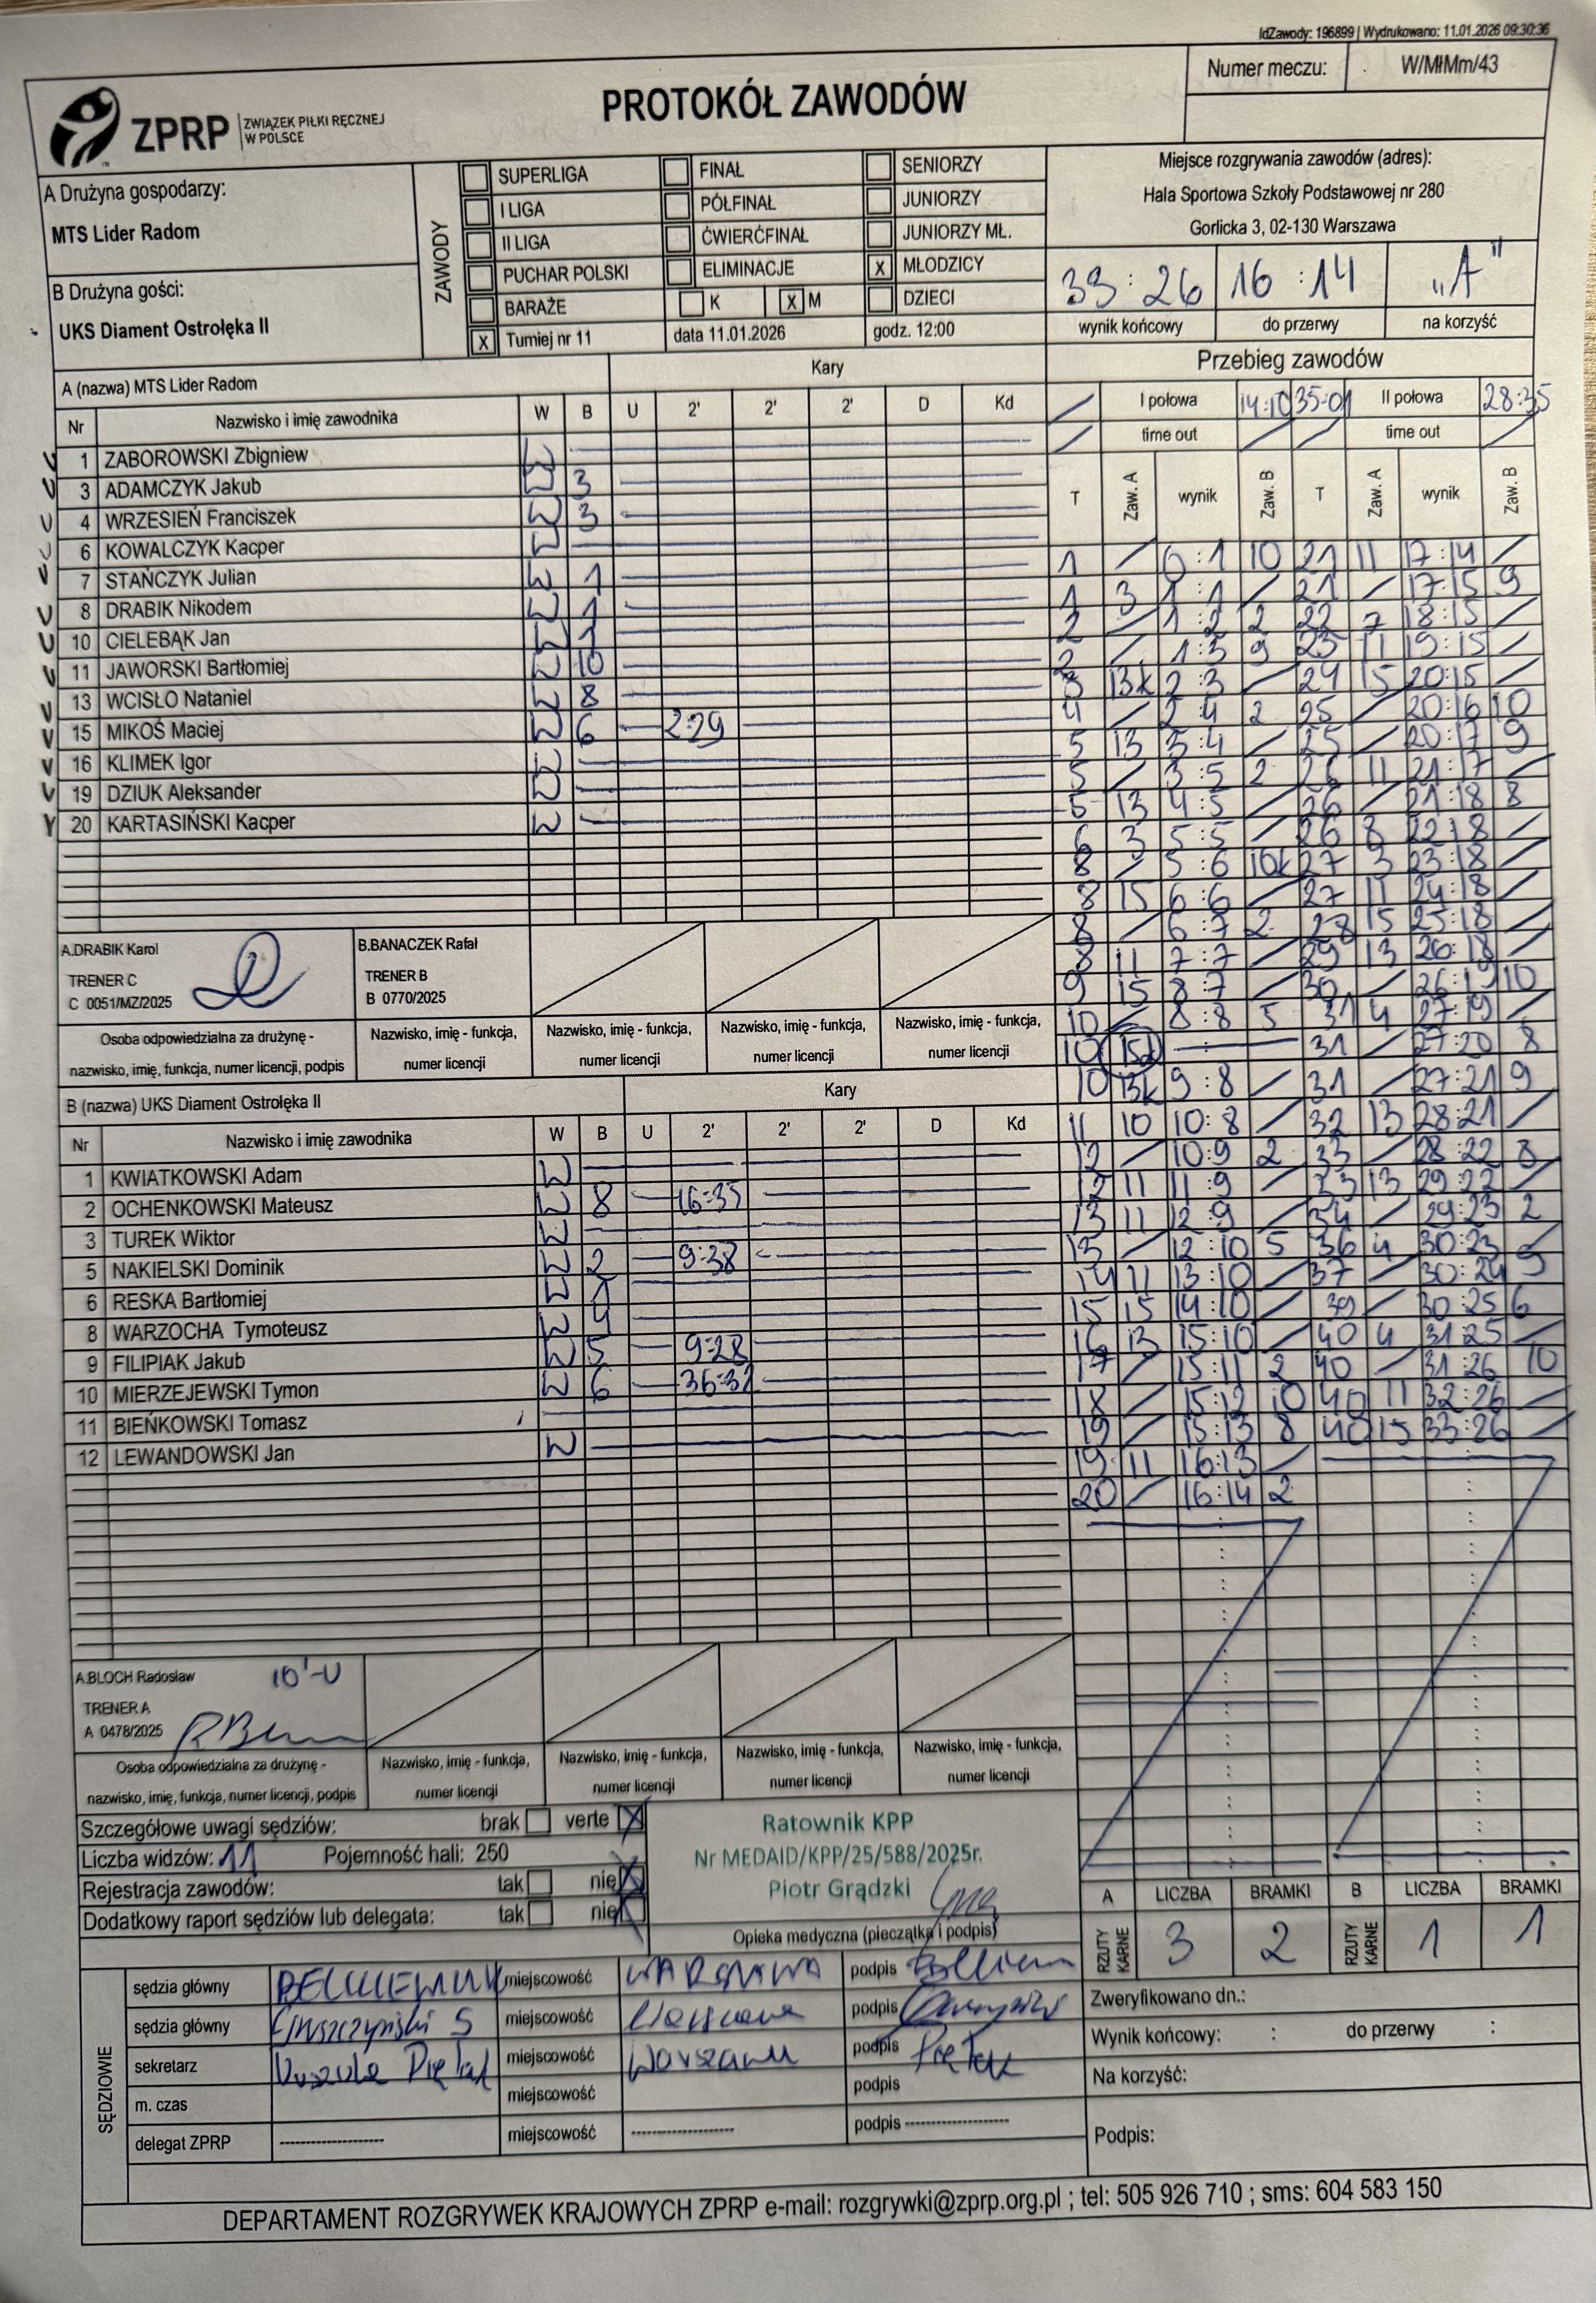 IdZawody: 196899 | Wydrukowano: 11.01.2026 09:30:36
Numer meczu: W/MłMm/43
PROTOKÓŁ ZAWODÓW
ZPRP ZWIĄZEK PIŁKI RĘCZNEJ W POLSCE
A Drużyna gospodarzy:
MTS Lider Radom
B Drużyna gości:
UKS Diament Ostrołęka II
ZAWODY
SUPERLIGA FINAŁ SENIORZY
I LIGA PÓŁFINAŁ JUNIORZY
II LIGA ĆWIERĆFINAŁ JUNIORZY MŁ.
PUCHAR POLSKI ELIMINACJE X MŁODZICY
BARAŻE K X M DZIECI
X Turniej nr 11 data 11.01.2026 godz. 12:00
Miejsce rozgrywania zawodów (adres):
Hala Sportowa Szkoły Podstawowej nr 280
Gorlicka 3, 02-130 Warszawa
33:26 16:14 „A"
wynik końcowy do przerwy na korzyść
A (nazwa) MTS Lider Radom Kary
Nr Nazwisko i imię zawodnika W B U 2' 2' 2' D Kd
1 ZABOROWSKI Zbigniew W
3 ADAMCZYK Jakub W 3
4 WRZESIEŃ Franciszek W 3
6 KOWALCZYK Kacper W
7 STAŃCZYK Julian W 1
8 DRABIK Nikodem W 1
10 CIELEBĄK Jan W 1
11 JAWORSKI Bartłomiej W 10
13 WCISŁO Nataniel W 8
15 MIKOŚ Maciej W 6 2:29
16 KLIMEK Igor W
19 DZIUK Aleksander W
20 KARTASIŃSKI Kacper W
A.DRABIK Karol
TRENER C
C 0051/MZ/2025
B.BANACZEK Rafał
TRENER B
B 0770/2025
Osoba odpowiedzialna za drużynę -
nazwisko, imię, funkcja, numer licencji, podpis
Nazwisko, imię - funkcja,
numer licencji
Nazwisko, imię - funkcja,
numer licencji
Nazwisko, imię - funkcja,
numer licencji
Nazwisko, imię - funkcja,
numer licencji
B (nazwa) UKS Diament Ostrołęka II Kary
Nr Nazwisko i imię zawodnika W B U 2' 2' 2' D Kd
1 KWIATKOWSKI Adam W
2 OCHENKOWSKI Mateusz W 8 16:35
3 TUREK Wiktor W
5 NAKIELSKI Dominik W 2 9:38
6 RESKA Bartłomiej W 1
8 WARZOCHA Tymoteusz W 4
9 FILIPIAK Jakub W 5 9:28
10 MIERZEJEWSKI Tymon W 6
11 BIEŃKOWSKI Tomasz
12 LEWANDOWSKI Jan W
A.BLOCH Radosław 10'-U
TRENER A
A 0478/2025
Osoba odpowiedzialna za drużynę -
nazwisko, imię, funkcja, numer licencji, podpis
Nazwisko, imię - funkcja,
numer licencji
Nazwisko, imię - funkcja,
numer licencji
Nazwisko, imię - funkcja,
numer licencji
Nazwisko, imię - funkcja,
numer licencji
Przebieg zawodów
I połowa 14:10 35:01 II połowa 28:35
time out time out
T Zaw. A wynik Zaw. B T Zaw. A wynik Zaw. B
1 / 0:1 10 21 11 17:14 /
1 3 1:1 / 21 / 17:15 9
2 / 1:2 2 22 7 18:15 /
2 / 1:3 9 23 11 19:15 /
3 13k 2:3 / 24 15 20:15 /
4 / 2:4 2 25 / 20:16 10
5 13 3:4 / 25 / 20:17 9
5 / 3:5 2 26 11 21:17 /
5 13 4:5 / 26 / 21:18 8
6 3 5:5 / 26 8 22:18 /
8 / 5:6 10k 27 3 23:18 /
8 15 6:6 / 27 11 24:18 /
8 / 6:7 2 28 15 25:18 /
8 11 7:7 / 29 13 26:18 /
9 15 8:7 / 30 / 26:19 10
10 / 8:8 5 31 4 27:19 /
10 : 31 / 27:20 8
10 13k 9:8 / 31 / 27:21 9
11 10 10:8 / 32 13 28:21 /
12 / 10:9 2 33 / 28:22 8
12 11 11:9 / 33 13 29:22 /
13 11 12:9 / 34 / 29:23 2
13 / 12:10 5 36 4 30:23 /
14 11 13:10 / 37 / 30:24 9
15 15 14:10 / 39 / 30:25 6
16 13 15:10 / 40 4 31:25 /
17 / 15:11 2 40 / 31:26 10
18 / 15:12 10 40 11 32:26 /
19 / 15:13 8 40 15 33:26 /
19 11 16:13 /
20 / 16:14 2
Szczegółowe uwagi sędziów: brak verte X
Liczba widzów: 11 Pojemność hali: 250
Rejestracja zawodów: tak nie X
Dodatkowy raport sędziów lub delegata: tak nie X
Ratownik KPP
Nr MEDAID/KPP/25/588/2025r.
Piotr Grądzki
Opieka medyczna (pieczątka i podpis)
A LICZBA BRAMKI B LICZBA BRAMKI
RZUTY KARNE 3 2 RZUTY KARNE 1 1
SĘDZIOWIE
sędzia główny miejscowość WARSZAWA podpis
sędzia główny miejscowość Warszawa podpis
sekretarz Urszula Piętak miejscowość Warszawa podpis Piętak
m. czas miejscowość podpis
delegat ZPRP ---------- miejscowość ---------- podpis ----------
Zweryfikowano dn.:
Wynik końcowy: : do przerwy :
Na korzyść:
Podpis:
DEPARTAMENT ROZGRYWEK KRAJOWYCH ZPRP e-mail: rozgrywki@zprp.org.pl ; tel: 505 926 710 ; sms: 604 583 150